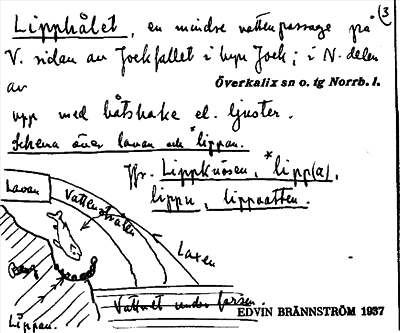 Lipphålet, en mindre vattenpassage på (3
V. sidan av Jockfallet i byn Jock; i N. delen
av Överkalix sn o. tg Norrb. l.
upp med båtshake el. ljuster.
Schema över lavan och *lippan.
Jfr. Lippknösen, *lipp(a),
lippu, lippvatten.
Lavan
Vattenstrålen
Laxen
Berg
Lippan.
Vattnet under forsen.
EDVIN BRÄNNSTRÖM 1937